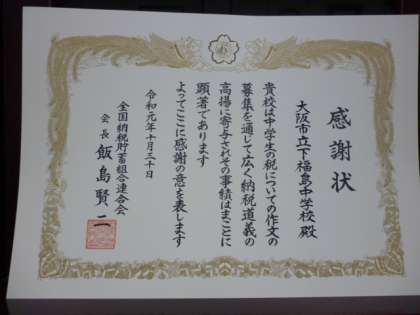 感謝状
大阪市立下福島中学校 殿
貴校は中学生の税についての作文の
募集を通じて広く納税道義の
高揚に寄与されその事績はまことに
顕著であります
よってここに感謝の意を表します
令和元年十月三十日
全国納税貯蓄組合連合会
会長 飯島賢二